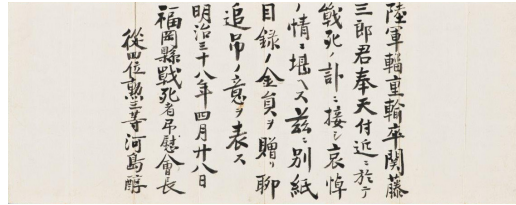 陸軍輜重輸卒関藤
三郎君奉天付近ニ於テ
戦死ノ訃ニ接シ哀悼
ノ情ニ堪ヘス茲ニ別紙
目録ノ金員ヲ贈リ聊
追吊ノ意ヲ表ス
明治三十八年四月廿八日
福岡縣戦死者吊慰會長
従四位勲三等河島醇